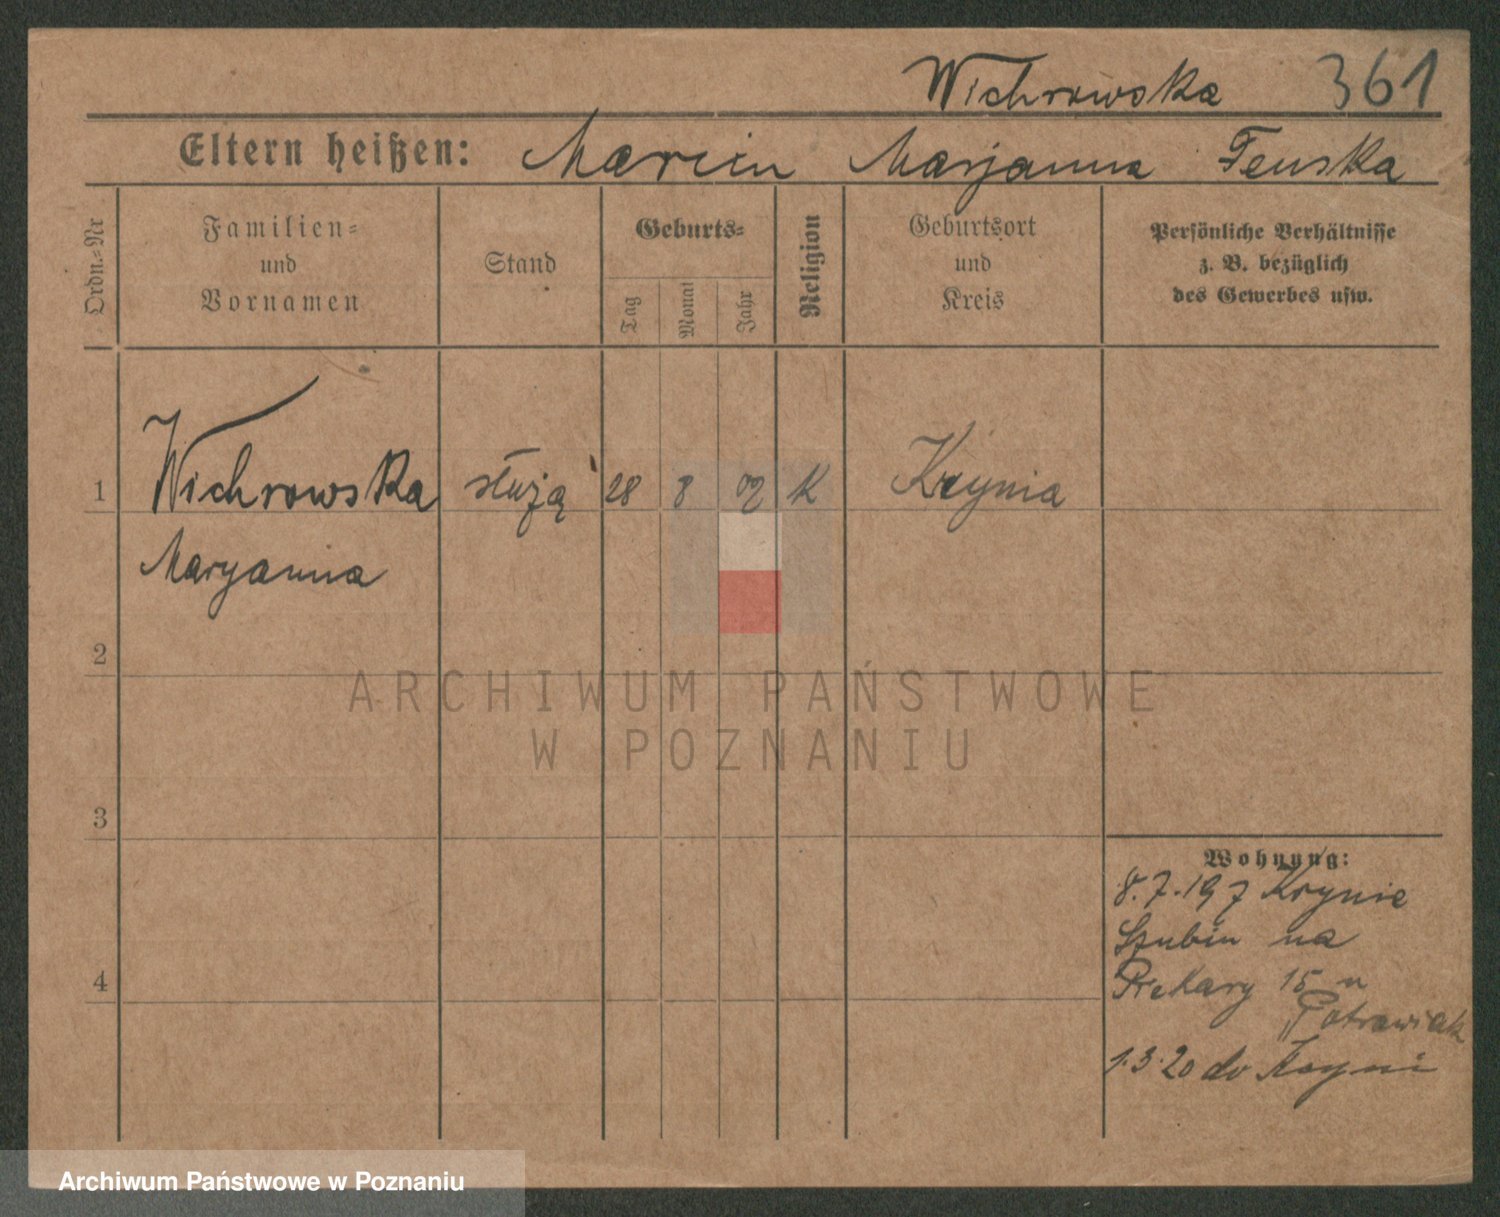 Wichrowska 361
Eltern heißen: Marcin Marjanna Fenska
Ordn.-Nr
Familien-
und
Vornamen
Stand
Geburts-
Tag
Monat
Jahr
Religion
Geburtsort
und
Kreis
Persönliche Verhältnisse
z. B. bezüglich
des Gewerbes usw.
1 Wichrowska służą 28 8 02 K Krynia
Maryanna
2
ARCHIWUM PAŃSTWOWE
W POZNANIU
3
Wohnung:
8.7.19 z Krynie
Szubin na
Piekary 15 u
4
1.3.20 do
Archiwum Państwowe w Poznaniu